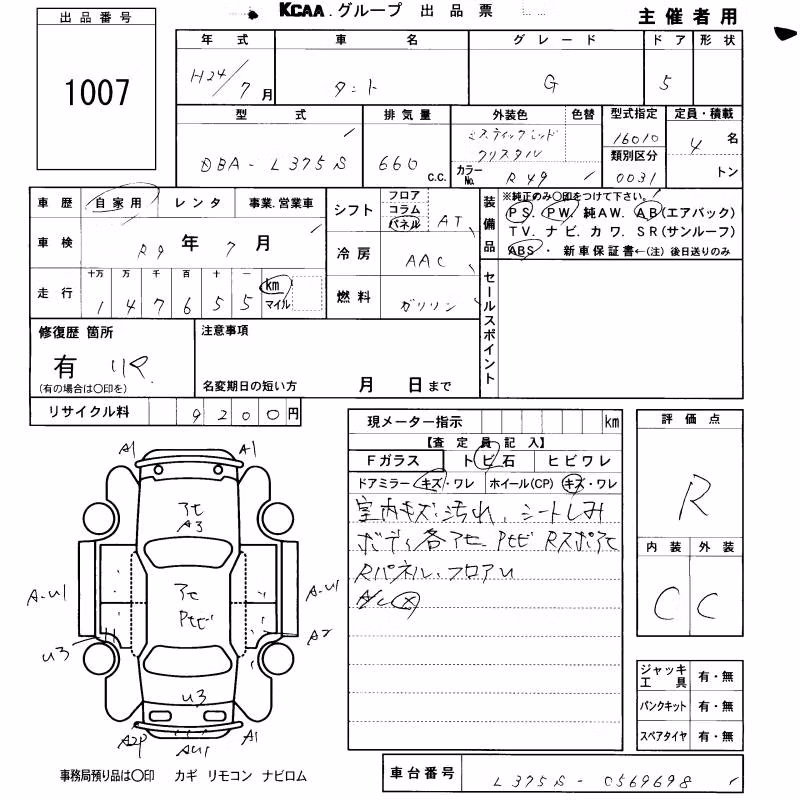 KCAA.グループ 出品票
主催者用
出品番号
1007
年式 車名 グレード ドア 形状
H24/7月 タント G 5
型式 排気量 外装色 色替 型式指定 定員・積載
DBA-L375S 660 c.c. ミスティックレッドクリスタル 16010 4名
カラーNo. R49 類別区分 0031 トン
車歴 自家用 レンタ 事業.営業車
シフト フロア コラム パネル AT
車検 R9年7月
冷房 AAC
走行 十万 万 千 百 十 一
147655 km マイル
燃料 ガソリン
装備品 ※純正のみ○印をつけて下さい。
PS. PW. 純AW. AB(エアバック)
TV. ナビ. カワ. SR(サンルーフ)
ABS・新車保証書←(注)後日送りのみ
セールスポイント
修復歴 箇所
有 リヤ
(有の場合は○印を)
注意事項
名変期日の短い方 月 日まで
リサイクル料 9200円
現メーター指示 km
【査定員記入】
Fガラス トビ石 ヒビワレ
ドアミラー キズ・ワレ ホイール(CP) キズ・ワレ
室内キズ汚れ、シートしみ
ボディ各アセ Ptセビ Rスポアセ
Rパネル・フロアU
A/C
評価点
R
内装 外装
C C
A1 A1
アセ
A3
アセ
Ptセビ
A-U1 A-U1
A2
U3
U3
A2P AU1 A1
ジャッキ工具 有・無
パンクキット 有・無
スペアタイヤ 有・無
事務局預り品は○印 カギ リモコン ナビロム
車台番号 L375S-0569698